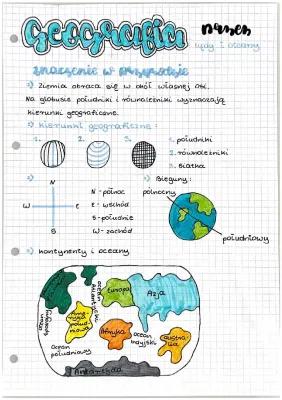 Geografia
lądy i oceany
znaczenie w przyrodzie
Ziemia obraca się w okół własnej osi.
Na globusie południki i równoleżniki wyznaczają
kierunki geograficzne.
kierunki geograficzne:
1. 2. 3.
1. południki
2. równoleżniki
3. siatka
N
W E
S
N - północ
E - wschód
S - południe
W - zachód
Bieguny:
północny
południowy
kontynenty i oceany
Europa
Azja
ocean Atlantycki
Afryka
ocean indyjski
ocean południowy
Antarktyda